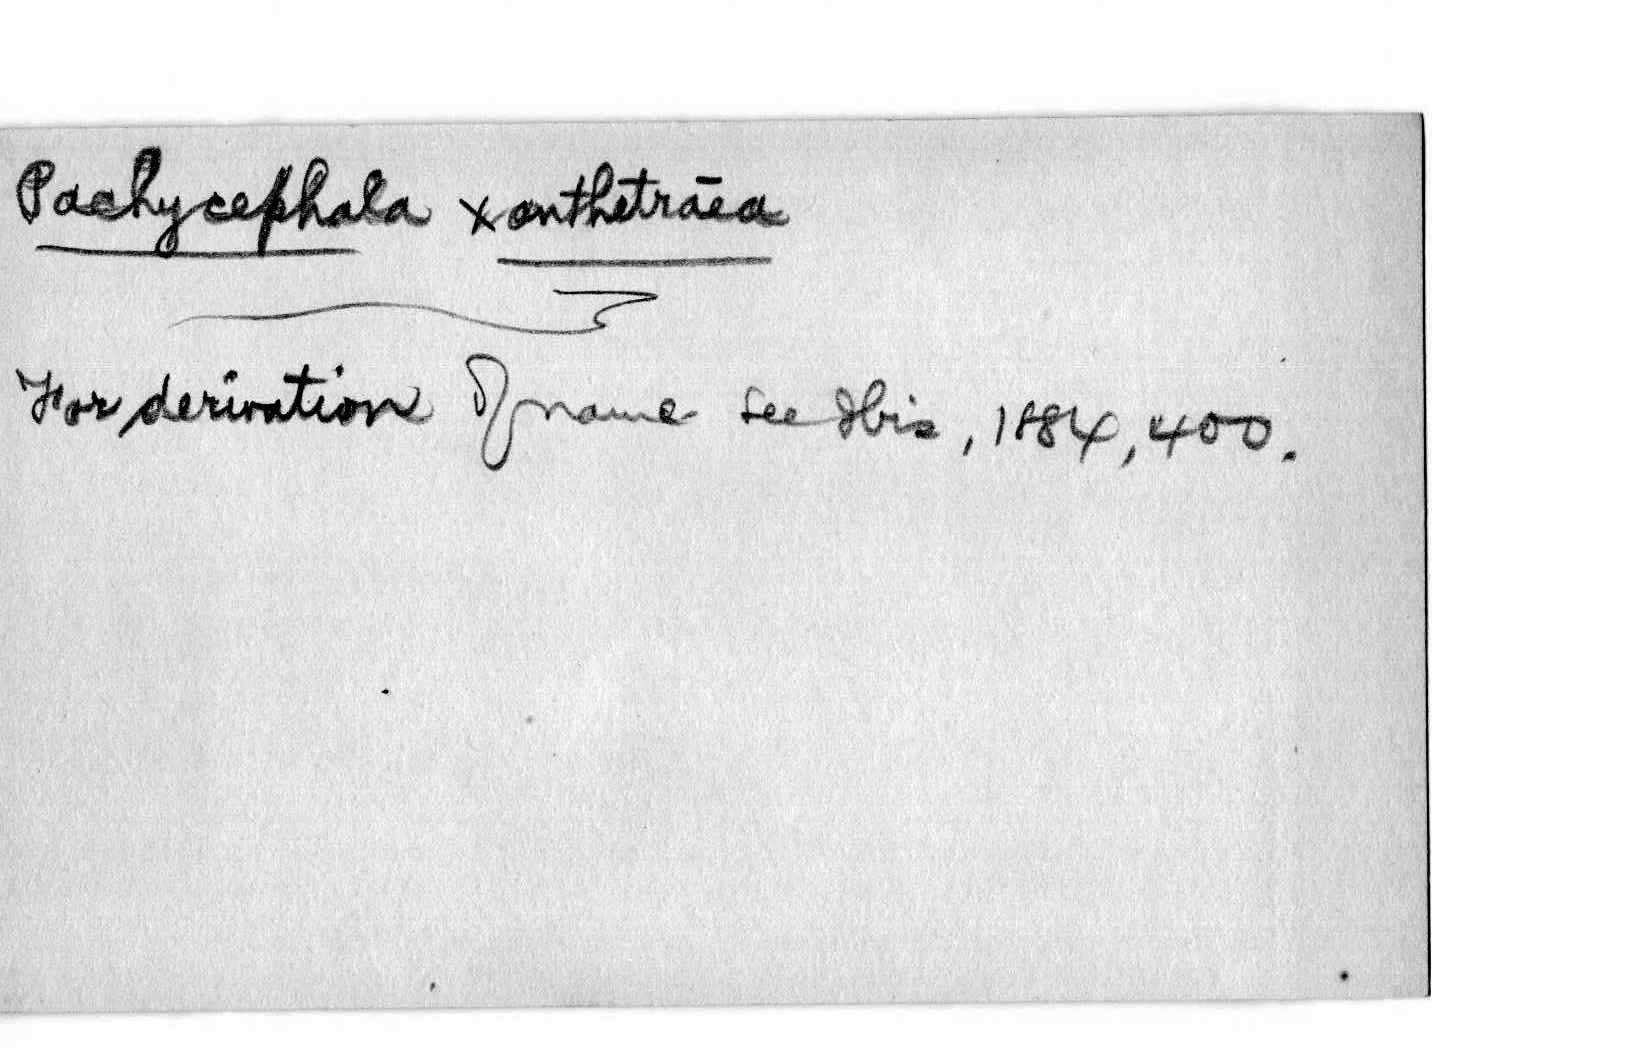 Pachycephala xanthetrāea
For derivation of name see Ibis, 1884, 400.